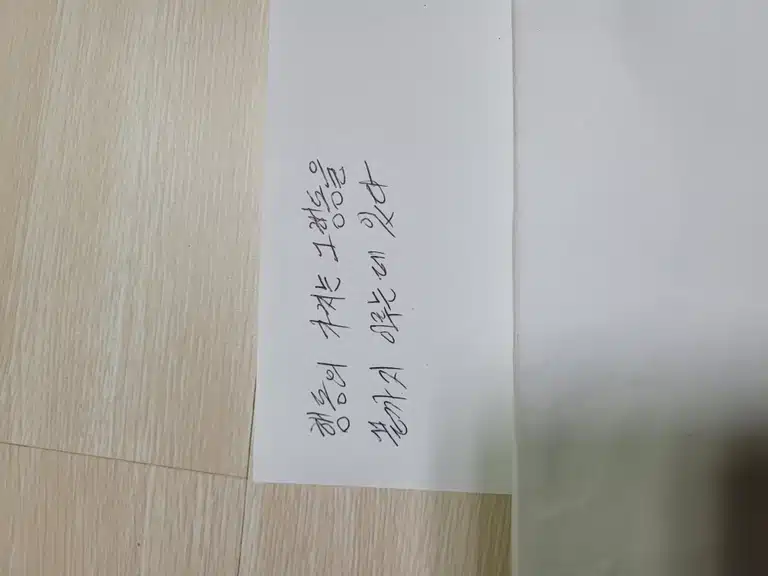 행동의 가치는 그 행동을
끝까지 이루는데 있다